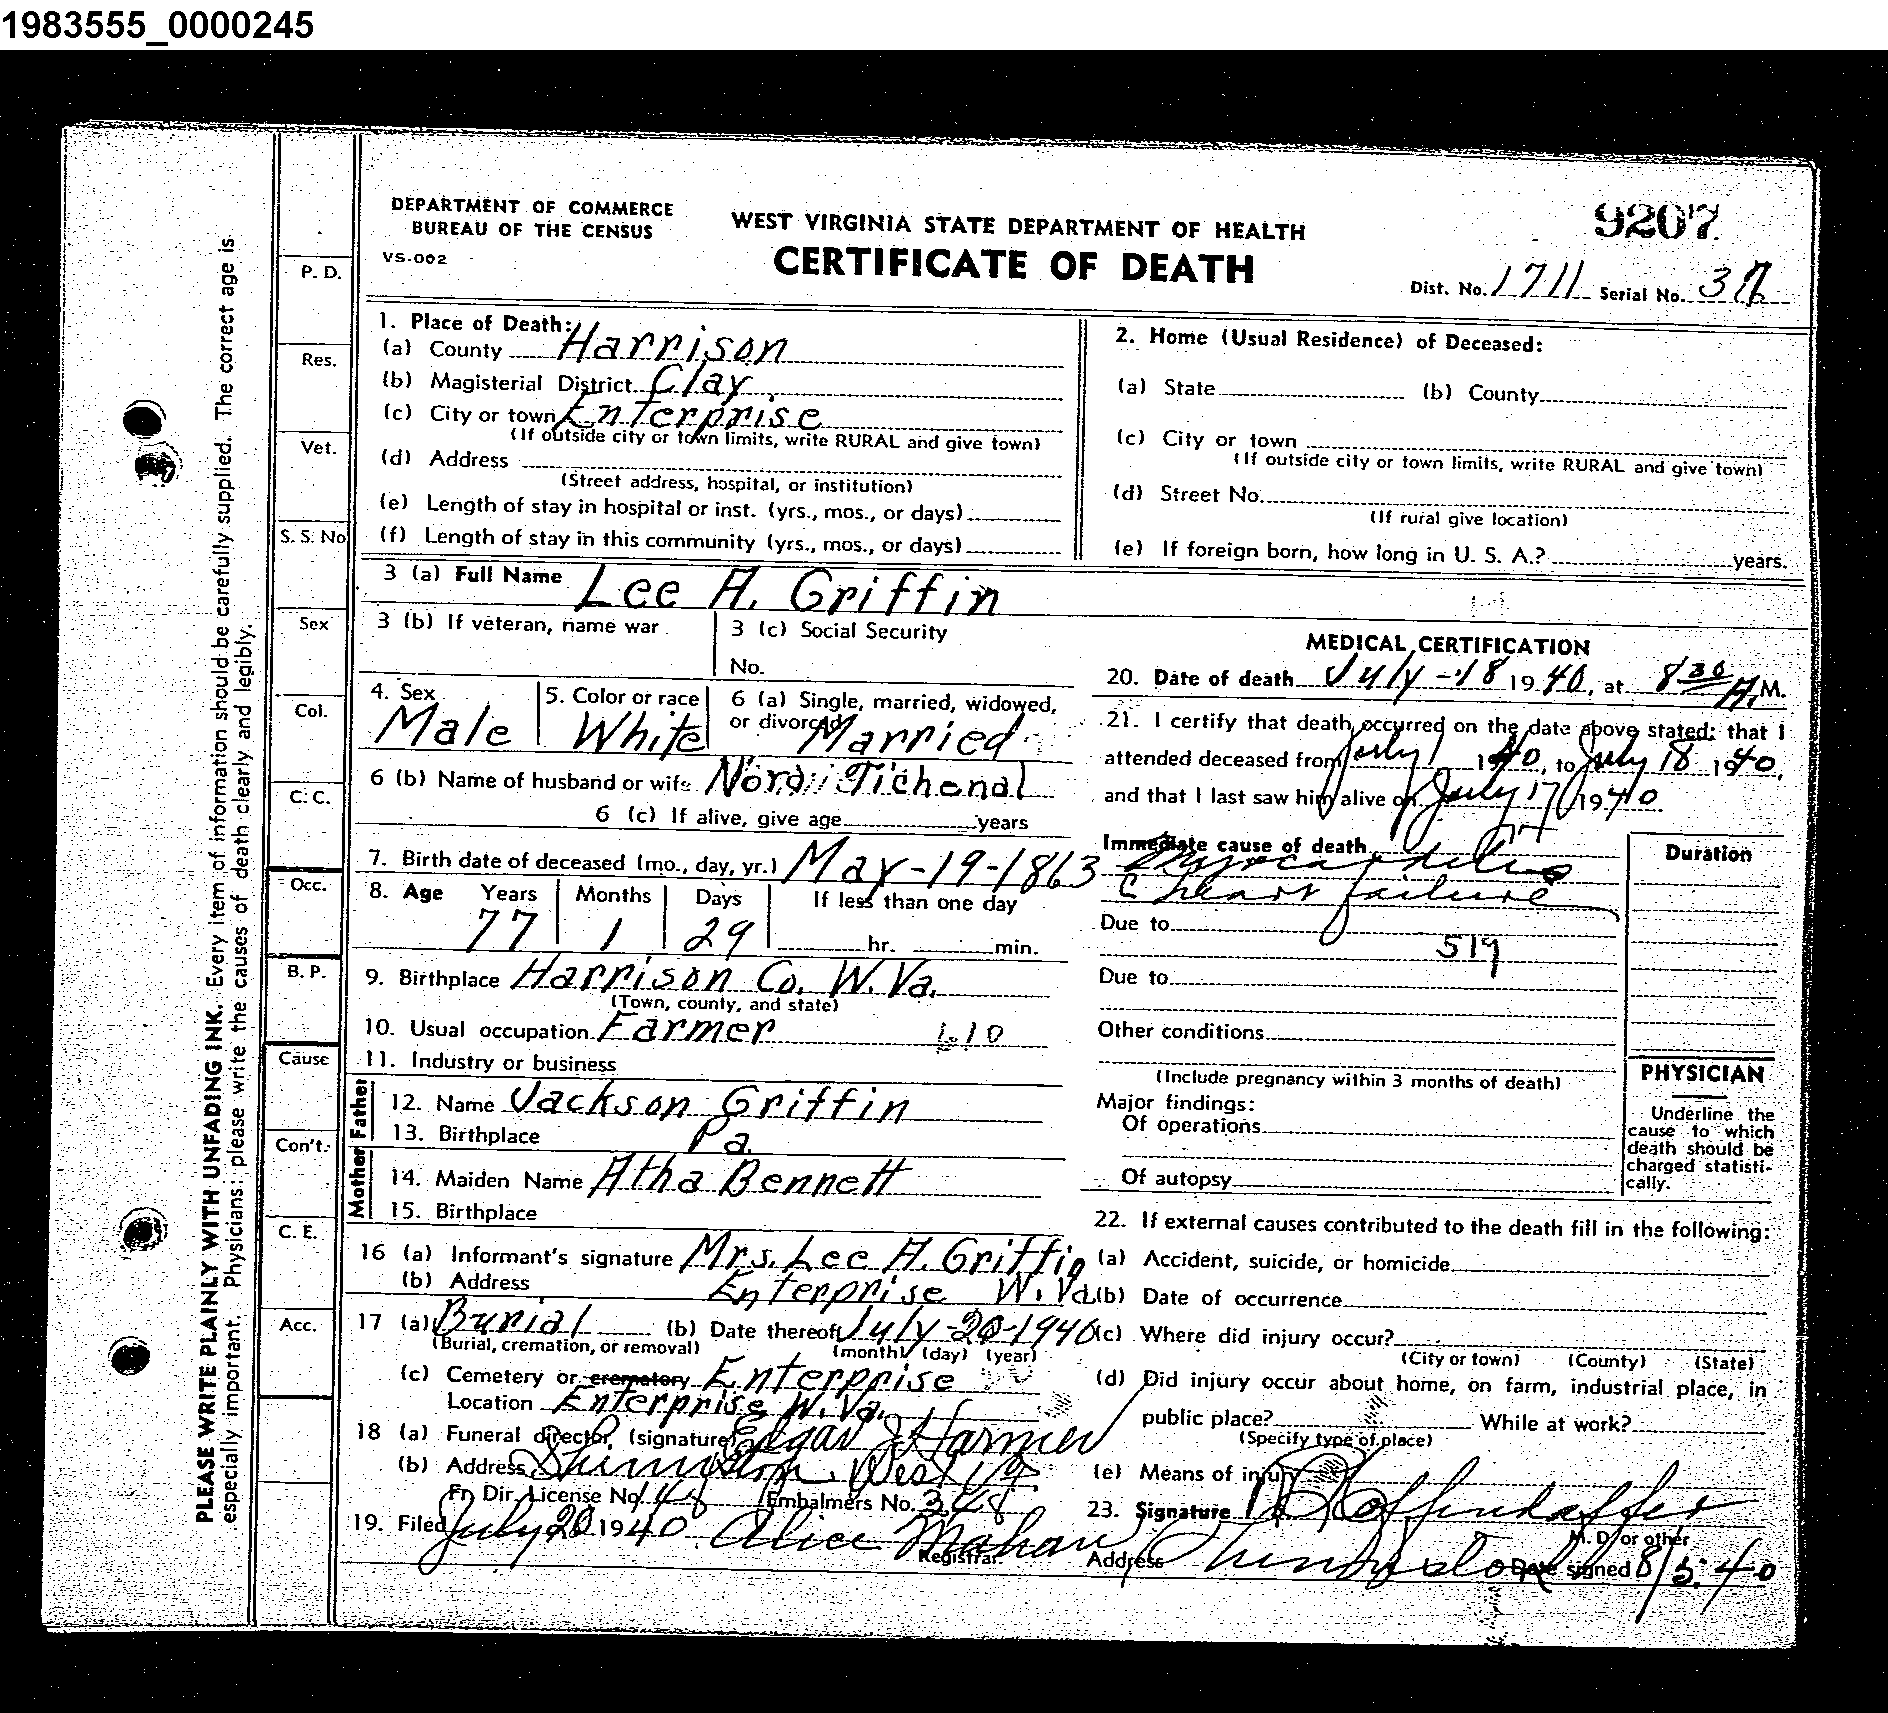 1983555_0000245
DEPARTMENT OF COMMERCE
BUREAU OF THE CENSUS
VS-002
WEST VIRGINIA STATE DEPARTMENT OF HEALTH
CERTIFICATE OF DEATH
9207
Dist. No. 1711 Serial No. 37
PLEASE WRITE PLAINLY WITH UNFADING INK. Every item of information should be carefully supplied. The correct age is
especially important. Physicians: please write the causes of death clearly and legibly.
P. D.
Res.
Vet.
S. S. No
Sex
Col.
C. C.
Occ.
B. P.
Cause
Con't.
C. E.
Acc.
1. Place of Death:
(a) County Harrison
(b) Magisterial District Clay
(c) City or town Enterprise
(If outside city or town limits, write RURAL and give town)
(d) Address
(Street address, hospital, or institution)
(e) Length of stay in hospital or inst. (yrs., mos., or days)
(f) Length of stay in this community (yrs., mos., or days)
2. Home (Usual Residence) of Deceased:
(a) State (b) County
(c) City or town
(If outside city or town limits, write RURAL and give town)
(d) Street No.
(If rural give location)
(e) If foreign born, how long in U. S. A.? years.
3 (a) Full Name Lee A. Griffin
3 (b) If veteran, name war
3 (c) Social Security
No.
4. Sex Male
5. Color or race White
6 (a) Single, married, widowed,
or divorced Married
6 (b) Name of husband or wife Nora Tichenal
6 (c) If alive, give age years
7. Birth date of deceased (mo., day, yr.) May-19-1863
8. Age Years Months Days If less than one day
77 1 29 hr. min.
9. Birthplace Harrison Co. W. Va.
(Town, county, and state)
10. Usual occupation Farmer 610
11. Industry or business
Father
12. Name Jackson Griffin
13. Birthplace Pa.
Mother
14. Maiden Name Atha Bennett
15. Birthplace
16 (a) Informant's signature Mrs. Lee A. Griffin
(b) Address Enterprise W. Va.
17 (a) Burial (b) Date thereof July-20-1940
(Burial, cremation, or removal) (month) (day) (year)
(c) Cemetery or crematory Enterprise
Location Enterprise W. Va.
18 (a) Funeral director, (signature) Edgar J Harmer
(b) Address Shinnston West Va
Fn Dir. License No. 148 Embalmers No. 348
19. Filed July 20 1940 Alice Mahan
Registrar
MEDICAL CERTIFICATION
20. Date of death July-18 1940, at 8 30 A. M.
21. I certify that death occurred on the date above stated: that I
attended deceased from July 1 1940, to July 18 1940,
and that I last saw him alive on July 17 1940
Immediate cause of death
Myocarditis
c heart failure
Duration
Due to
519
Due to
Other conditions
(Include pregnancy within 3 months of death)
Major findings:
Of operations
Of autopsy
PHYSICIAN
Underline the
cause to which
death should be
charged statisti-
cally.
22. If external causes contributed to the death fill in the following:
(a) Accident, suicide, or homicide
(b) Date of occurrence
(c) Where did injury occur?
(City or town) (County) (State)
(d) Did injury occur about home, on farm, industrial place, in
public place? While at work?
(Specify type of place)
(e) Means of injury
23. Signature
M. D. or other
Address Shinnston Date signed 8/5-40